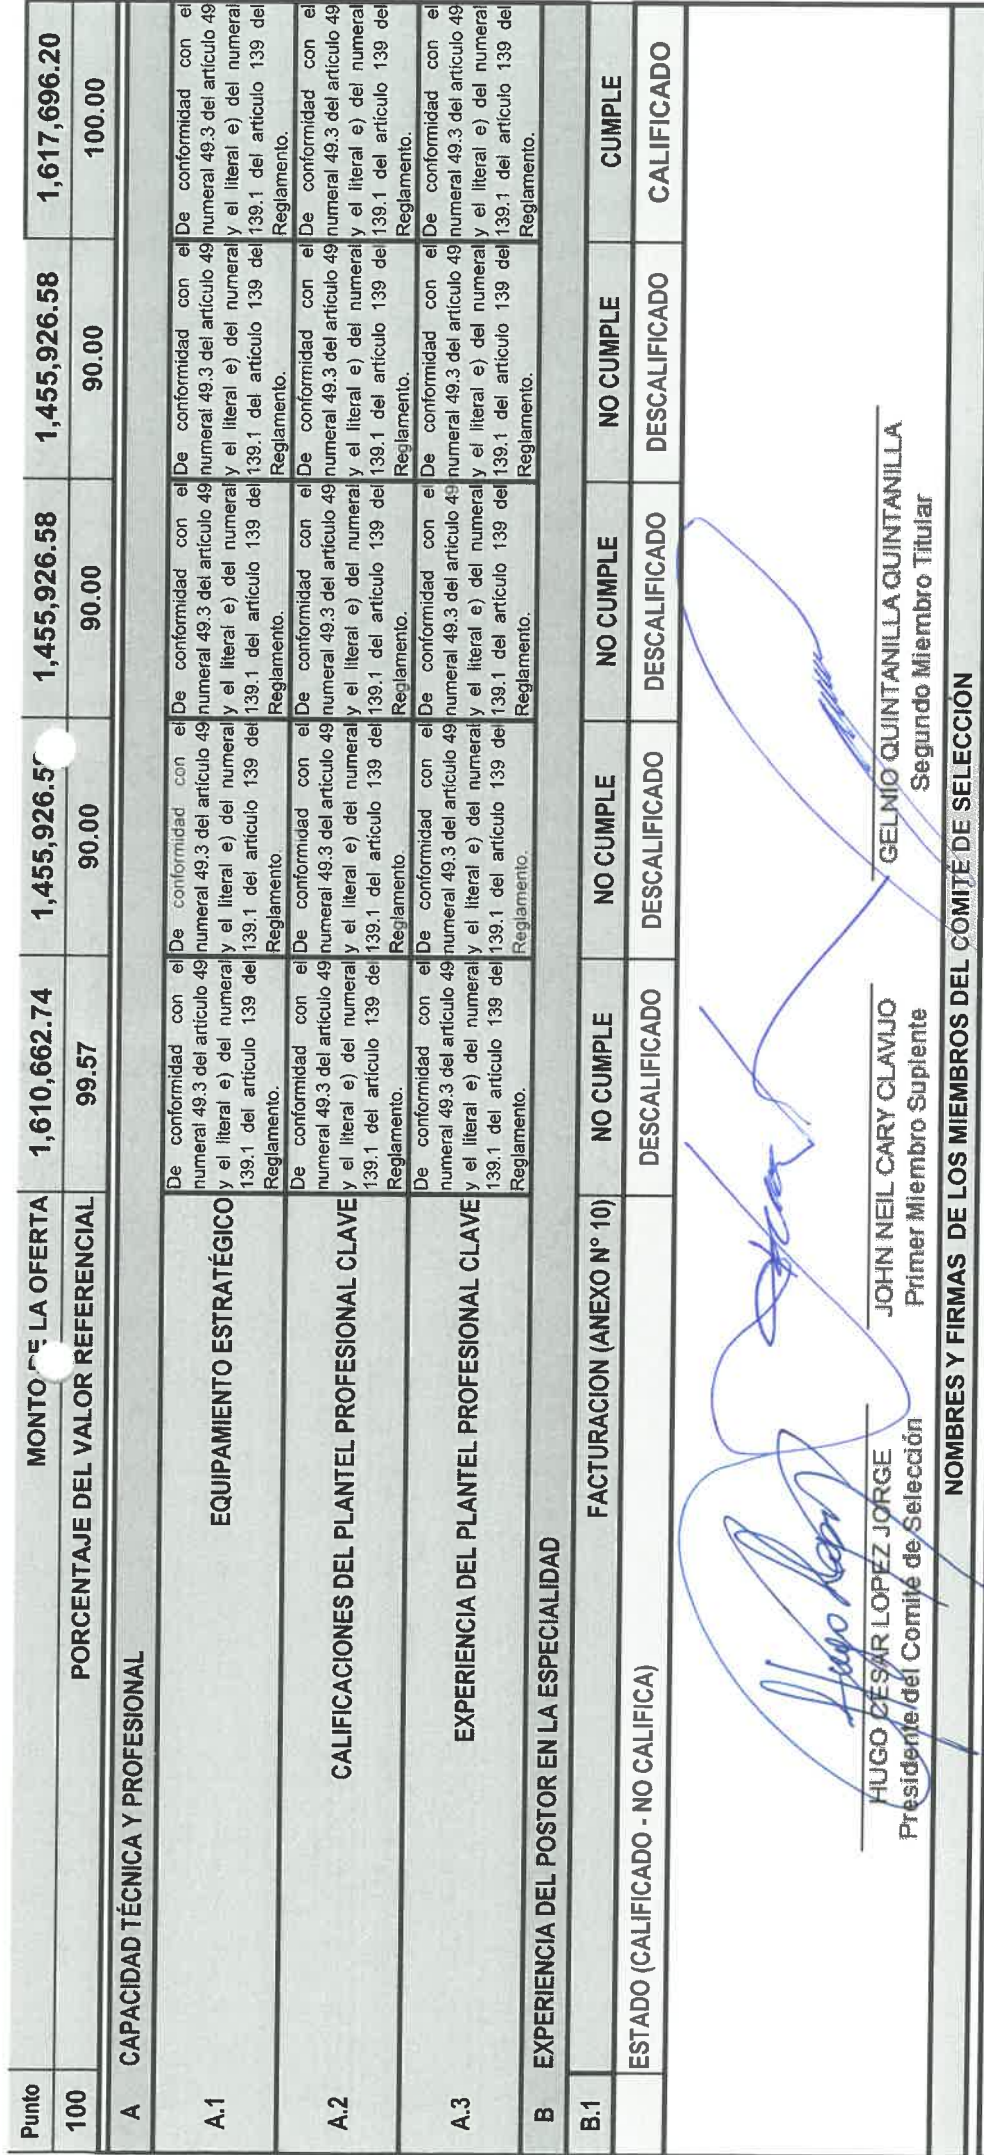 Punto MONTO DE LA OFERTA 1,610,662.74 1,455,926.5 1,455,926.58 1,455,926.58 1,617,696.20
100 PORCENTAJE DEL VALOR REFERENCIAL 99.57 90.00 90.00 90.00 100.00
A CAPACIDAD TÉCNICA Y PROFESIONAL
A.1 EQUIPAMIENTO ESTRATÉGICO
De conformidad con el
numeral 49.3 del artículo 49
y el literal e) del numeral
139.1 del artículo 139 del
Reglamento.
De conformidad con el
numeral 49.3 del artículo 49
y el literal e) del numeral
139.1 del artículo 139 del
Reglamento.
De conformidad con el
numeral 49.3 del artículo 49
y el literal e) del numeral
139.1 del artículo 139 del
Reglamento.
De conformidad con el
numeral 49.3 del artículo 49
y el literal e) del numeral
139.1 del artículo 139 del
Reglamento.
De conformidad con el
numeral 49.3 del artículo 49
y el literal e) del numeral
139.1 del artículo 139 del
Reglamento.
A.2 CALIFICACIONES DEL PLANTEL PROFESIONAL CLAVE
De conformidad con el
numeral 49.3 del artículo 49
y el literal e) del numeral
139.1 del artículo 139 del
Reglamento.
De conformidad con el
numeral 49.3 del artículo 49
y el literal e) del numeral
139.1 del artículo 139 del
Reglamento.
De conformidad con el
numeral 49.3 del artículo 49
y el literal e) del numeral
139.1 del artículo 139 del
Reglamento.
De conformidad con el
numeral 49.3 del artículo 49
y el literal e) del numeral
139.1 del artículo 139 del
Reglamento.
De conformidad con el
numeral 49.3 del artículo 49
y el literal e) del numeral
139.1 del artículo 139 del
Reglamento.
A.3 EXPERIENCIA DEL PLANTEL PROFESIONAL CLAVE
De conformidad con el
numeral 49.3 del artículo 49
y el literal e) del numeral
139.1 del artículo 139 del
Reglamento.
De conformidad con el
numeral 49.3 del artículo 49
y el literal e) del numeral
139.1 del artículo 139 del
Reglamento.
De conformidad con el
numeral 49.3 del artículo 49
y el literal e) del numeral
139.1 del artículo 139 del
Reglamento.
De conformidad con el
numeral 49.3 del artículo 49
y el literal e) del numeral
139.1 del artículo 139 del
Reglamento.
De conformidad con el
numeral 49.3 del artículo 49
y el literal e) del numeral
139.1 del artículo 139 del
Reglamento.
B EXPERIENCIA DEL POSTOR EN LA ESPECIALIDAD
B.1 FACTURACION (ANEXO N° 10) NO CUMPLE NO CUMPLE NO CUMPLE NO CUMPLE CUMPLE
ESTADO (CALIFICADO - NO CALIFICA) DESCALIFICADO DESCALIFICADO DESCALIFICADO DESCALIFICADO CALIFICADO
HUGO CESAR LOPEZ JORGE
Presidente del Comité de Selección
JOHN NEIL CARY CLAVIJO
Primer Miembro Suplente
GELNIO QUINTANILLA QUINTANILLA
Segundo Miembro Titular
NOMBRES Y FIRMAS DE LOS MIEMBROS DEL COMITÉ DE SELECCIÓN